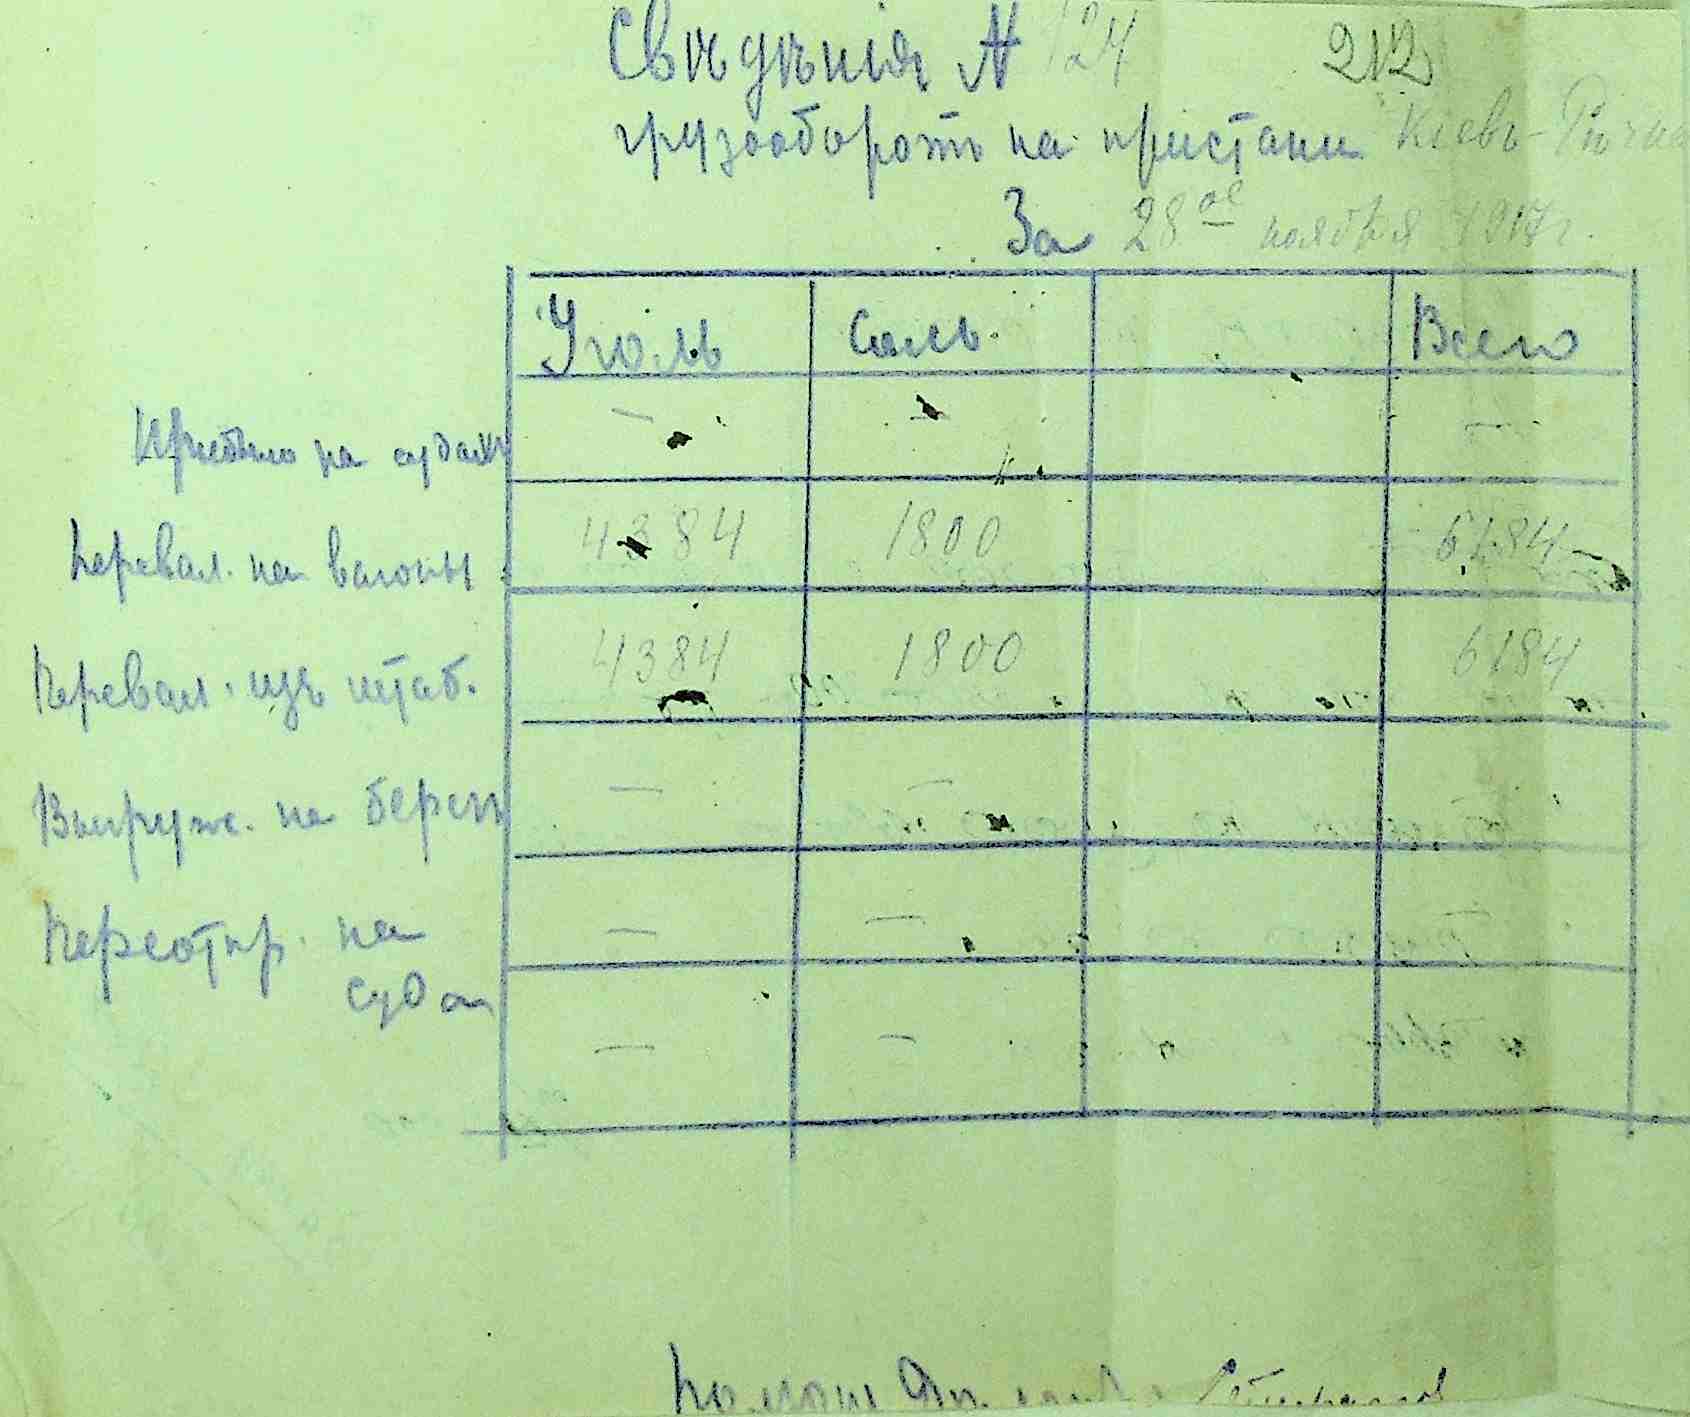 Свѣдѣнія № 124 212
грузооборотъ на пристани Кіевъ-
За 28ое ноября 1917 г.
Уголь Соль Всего
Прибыло на судахъ — — —
Перевал. на вагоны 4384 1800 6184
Перевал. изъ штаб. 4384 1800 6184
Выгруж. на берегъ — —
Переотпр. на — — —
суда — —